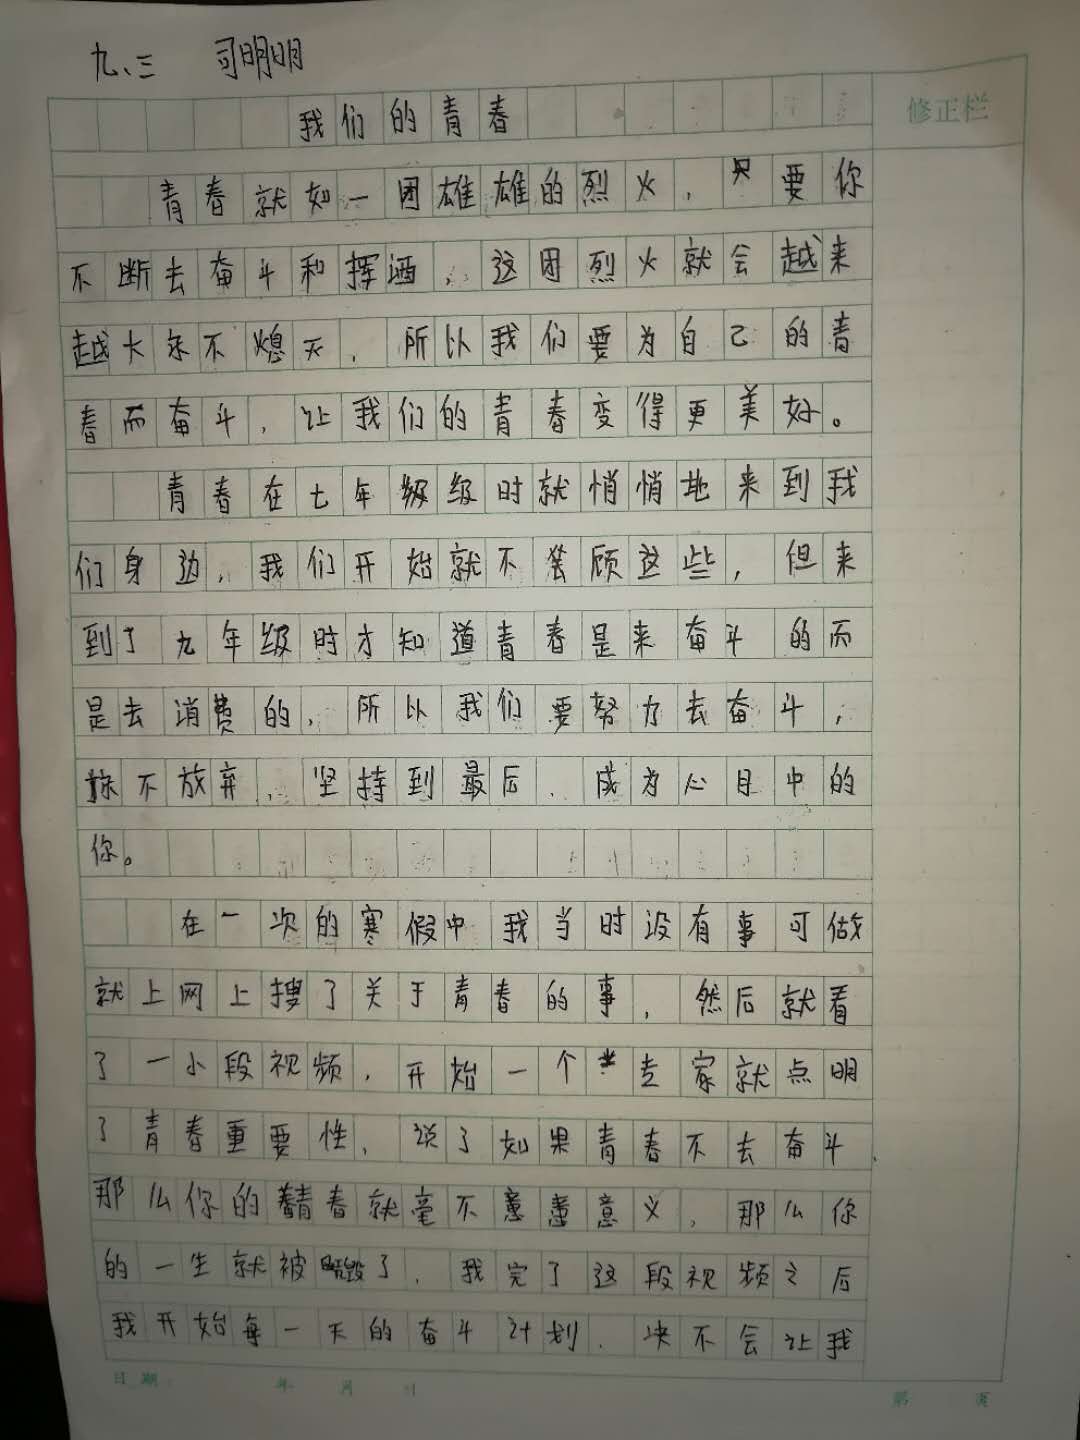 九、三 司明明
修正栏
我们的青春
青春就如一团雄雄的烈火，只要你
不断去奋斗和挥洒，这团烈火就会越来
越大永不熄灭，所以我们要为自己的青
春而奋斗，让我们的青春变得更美好。
青春在七年级级时就悄悄地来到我
们身边，我们开始就不装顾这些，但来
到了九年级时才知道青春是来奋斗的而
是去消费的，所以我们要努力去奋斗，
不放弃，坚持到最后，成为心目中的
你。
在一次的寒假中我当时没有事可做
就上网上搜了关于青春的事，然后就看
了一小段视频，开始一个专家就点明
了青春重要性，说了如果青春不去奋斗
那么你的青春就毫不意义，那么你
的一生就被毁了，我完了这段视频之后
我开始每一天的奋斗计划，决不会让我
日期： 年 月 日
第 页